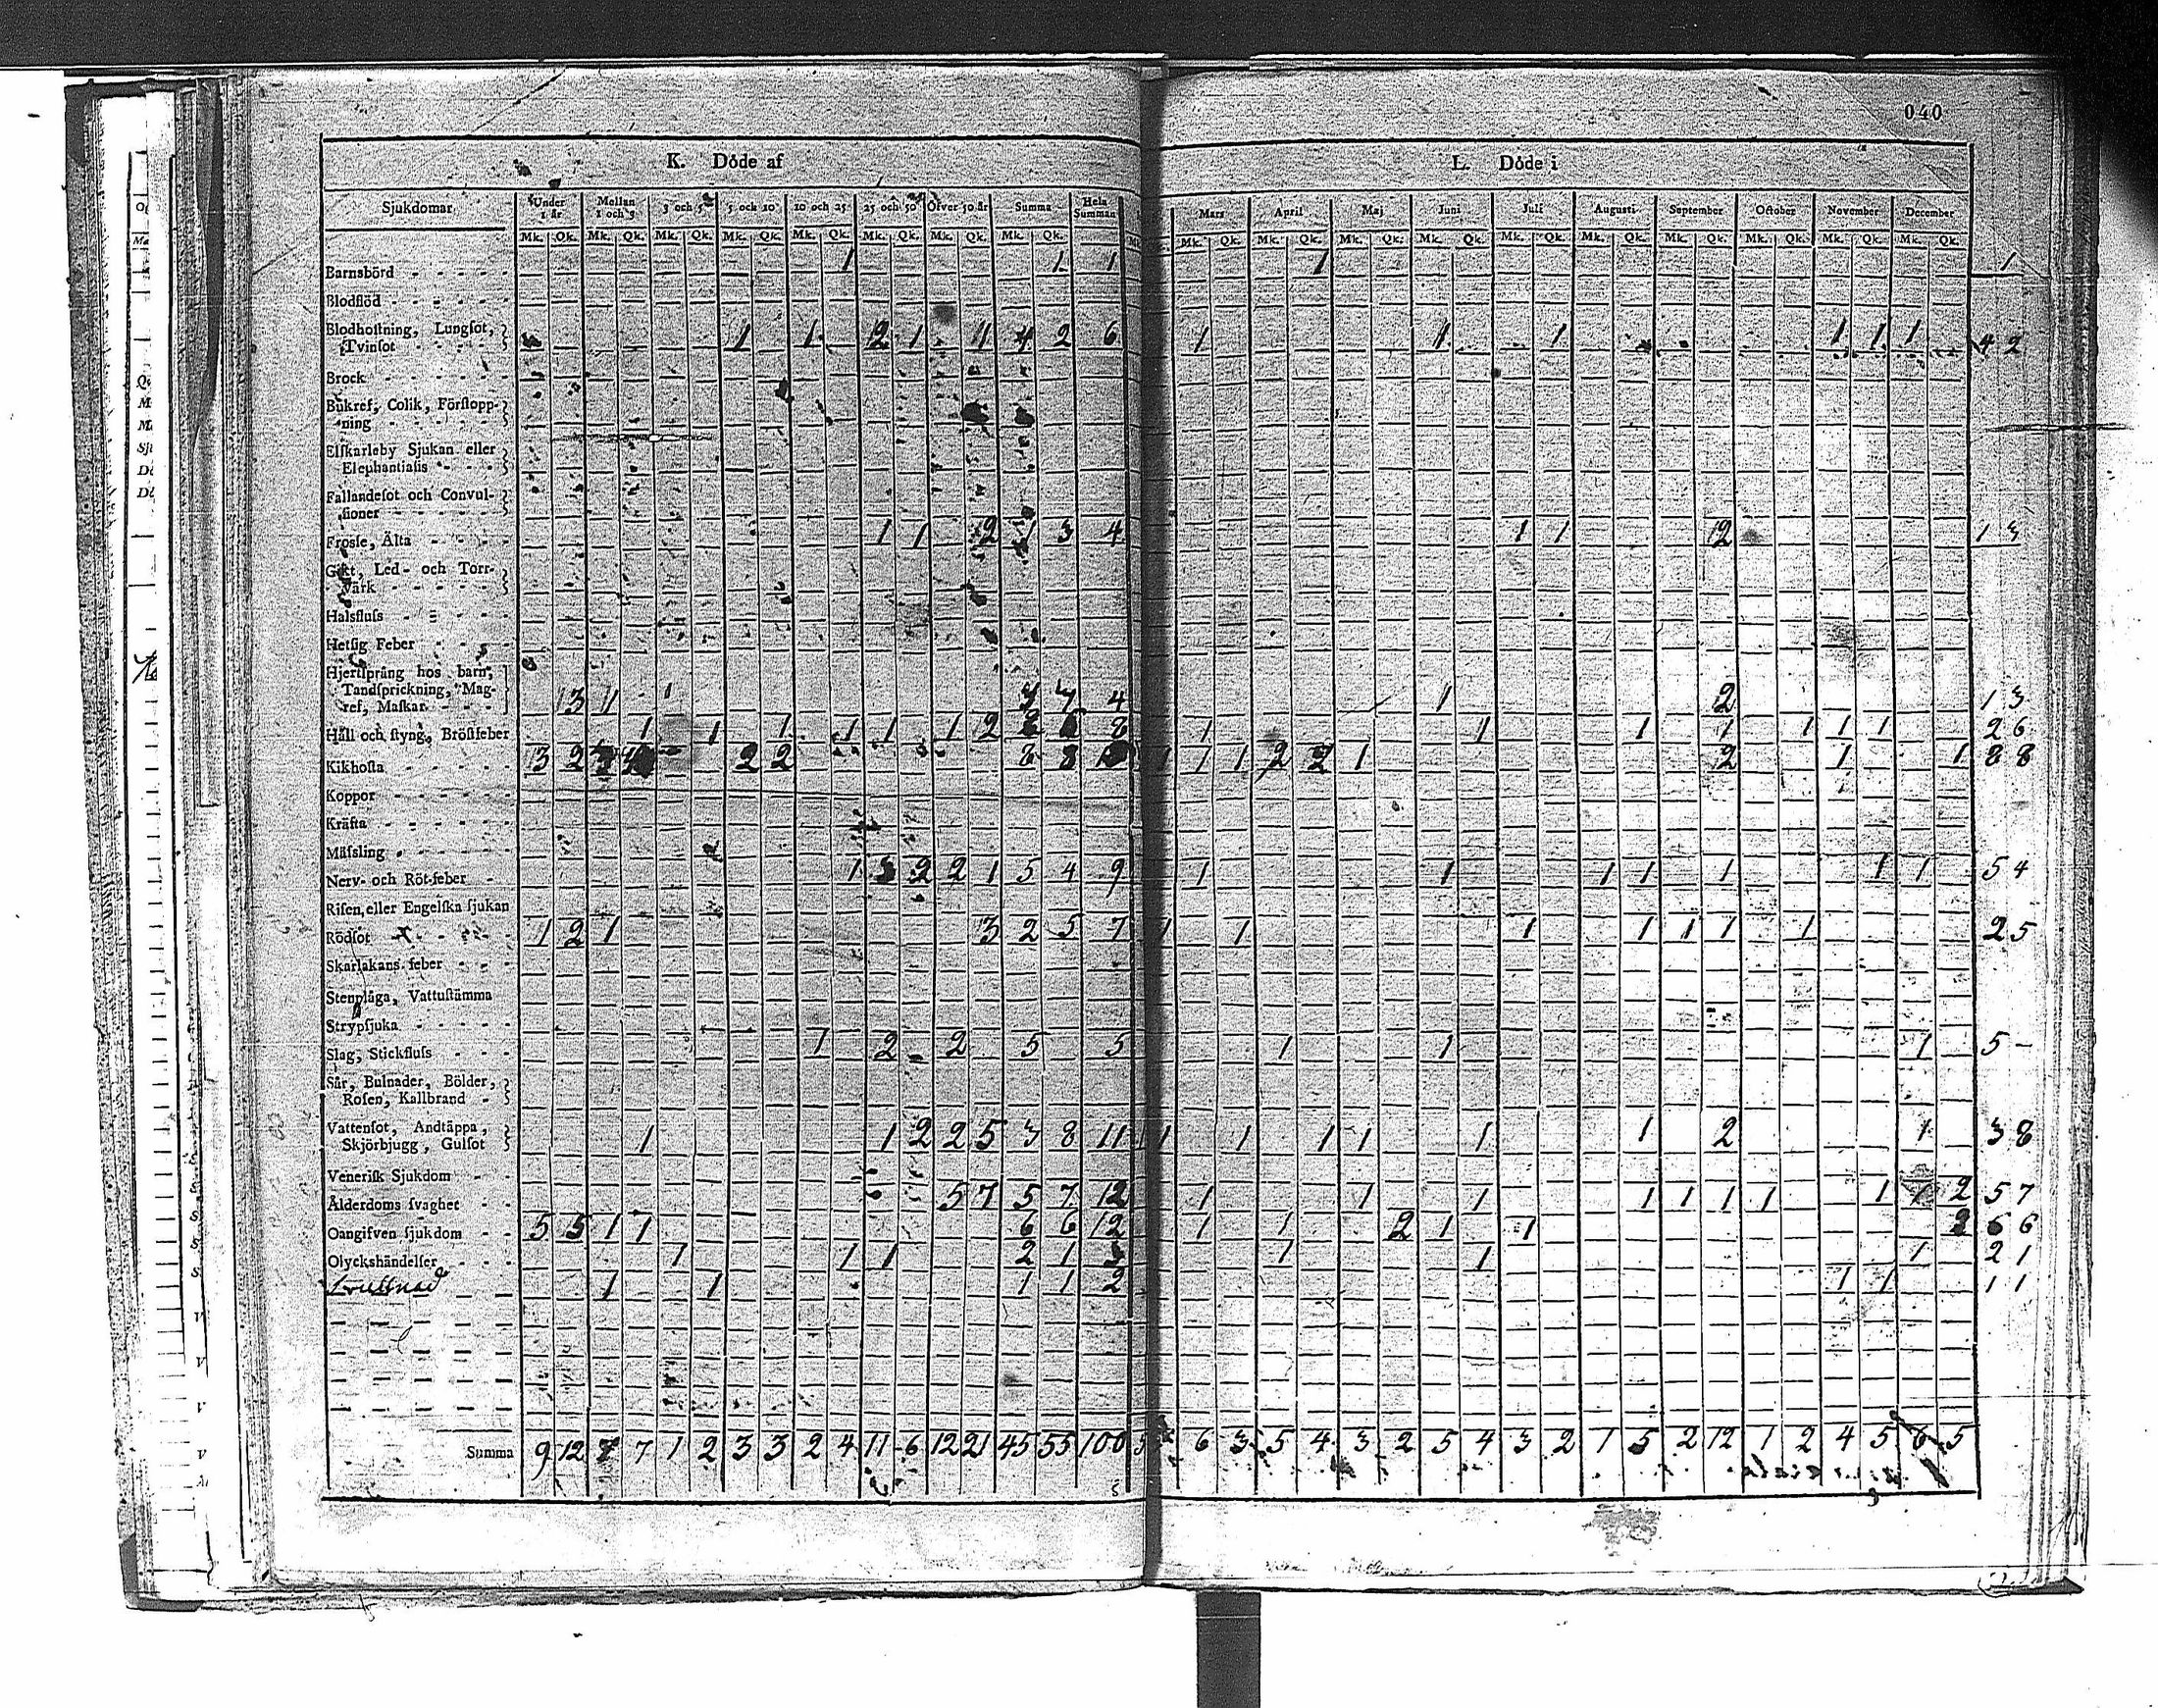 040
K. Döde af
Sjukdomar Under 1 år Mellan 1 och 3 3 och 5 5 och 10 10 och 25 25 och 50 Öfver 50 år Summa Hela Summan
Mk. Qk. Mk. Qk. Mk. Qk. Mk. Qk. Mk. Qk. Mk. Qk. Mk. Qk. Mk. Qk.
Barnsbörd 1 1 1
Blodflöd
Blodhoſtning, Lungſot,
Tvinſot 1 1 2 1 1 4 2 6
Brock
Bukref, Colik, Förſtopp-
ning
Elſkarleby Sjukan eller
Elephantiaſis
Fallandeſot och Convul-
ſioner
Frosſe, Älta 1 1 2 1 3 4
Gikt, Led- och Torr-
Värk
Halsfluſs
Hetſig Feber
Hjertſprång hos barn,
Tandſprickning, Mag-
ref, Maſkar 3 1 4
Håll och ſtyng, Bröſtfeber 1 1 1 1 1 1 2 8
Kikhoſta 3 2 2 2 8 8
Koppor
Kräfta
Mäſsling
Nerv- och Röt-feber 1 2 2 1 5 4 9
Riſen, eller Engelſka ſjukan
Rödſot 1 2 1 3 2 5 7
Skarlakans feber
Stenplåga, Vattuſtämma
Strypſjuka
Slag, Stickfluſs 1 2 2 5 5
Sår, Bulnader, Bölder,
Roſen, Kallbrand
Vattenſot, Andtäppa,
Skjörbjugg, Gulſot 1 1 2 2 5 3 8 11
Veneriſk Sjukdom
Ålderdoms ſvaghet 5 7 5 7 12
Oangifven ſjukdom 5 5 1 1 6 6 12
Olyckshändelſer 1 1 1 2 1 3
1 1 1 1 2
Summa 9 12 7 7 1 2 3 3 2 4 11 6 12 21 45 55 100
L. Döde i
Mars April Maj Juni Juli Auguſti September Oktober November December
Mk. Qk. Mk. Qk. Mk. Qk. Mk. Qk. Mk. Qk. Mk. Qk. Mk. Qk. Mk. Qk. Mk. Qk. Mk. Qk.
1 1
1 1 1 1 1 1 4 2
1 1 2 1 3
1 2 1 3
1 1 1 1 1 1 1 2 6
1 1 1 2 2 1 2 1 1 8 8
1 1 1 1 1 1 1 5 4
1 1 1 1 1 1 1 2 5
1 1 1 5 -
1 1 1 1 1 1 2 1 3 8
1 1 1 1 1 1 1 1 1 2 5 7
1 1 2 1 1 2 6 6
1 1 1 2 1
1 1 1 1
6 3 5 4 3 2 5 4 3 2 1 5 2 12 1 2 4 5 6 5